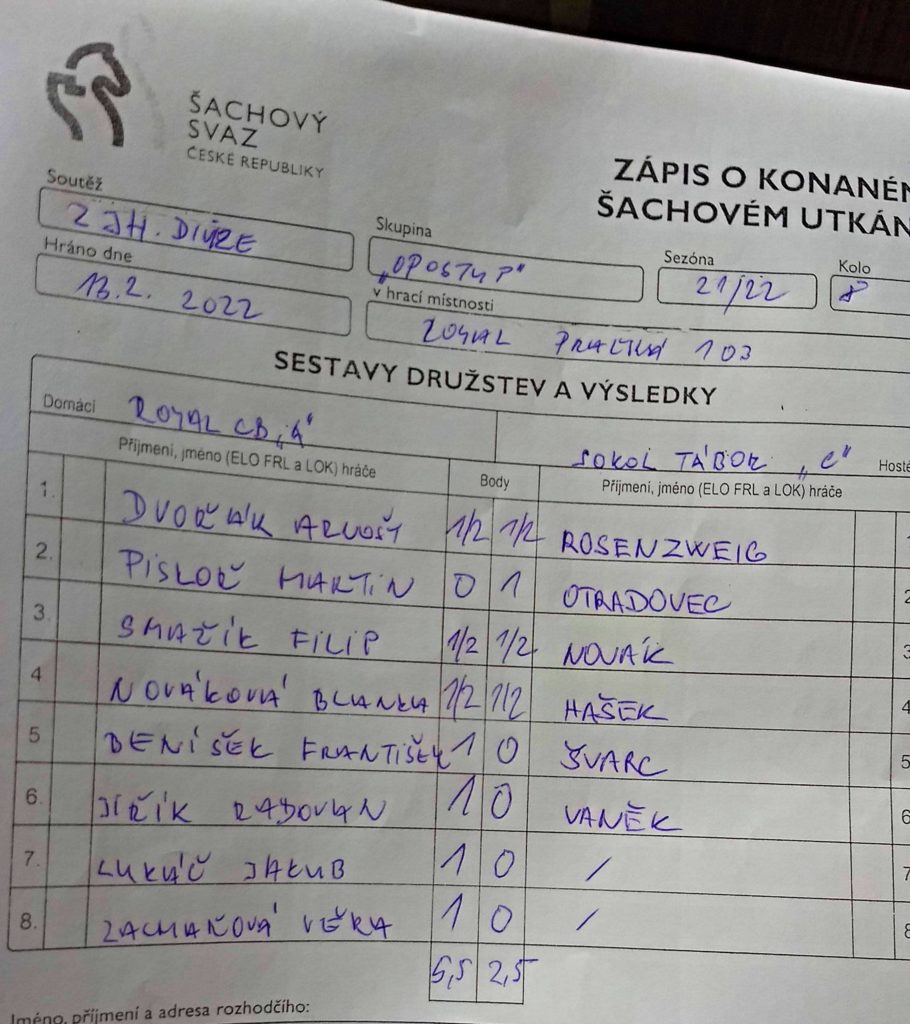 ŠACHOVÝ
SVAZ
ČESKÉ REPUBLIKY
ZÁPIS O KONANÉM
ŠACHOVÉM UTKÁN
Soutěž
2 JH. DIVIZE
Skupina
Sezóna
21/22
Kolo
8
Hráno dne
13.2. 2022
v hrací místnosti
103
SESTAVY DRUŽSTEV A VÝSLEDKY
Domácí
ROYAL CB „A"
SOKOL TÁBOR „C"
Hosté
Příjmení, jméno (ELO FRL a LOK) hráče
Body
Příjmení, jméno (ELO FRL a LOK) hráče
1. DVOŘÁK ARNOŠT 1/2 1/2 ROSENZWEIG 1
2. PISLOŘ MARTIN 0 1 OTRADOVEC 2
3. SMAŽÍK FILIP 1/2 1/2 NOVÁK 3
4 NOVÁKOVÁ BLANKA 1/2 1/2 HAŠEK 4
5 BENÍŠEK FRANTIŠEK 1 0 ŠVARC 5
6. JIŘÍK RADOVAN 1 0 VANĚK 6
7. LUKÁČ JAKUB 1 0 / 7
8. VĚRA 1 0 / 8
5,5 2,5
Jméno, příjmení a adresa rozhodčího: